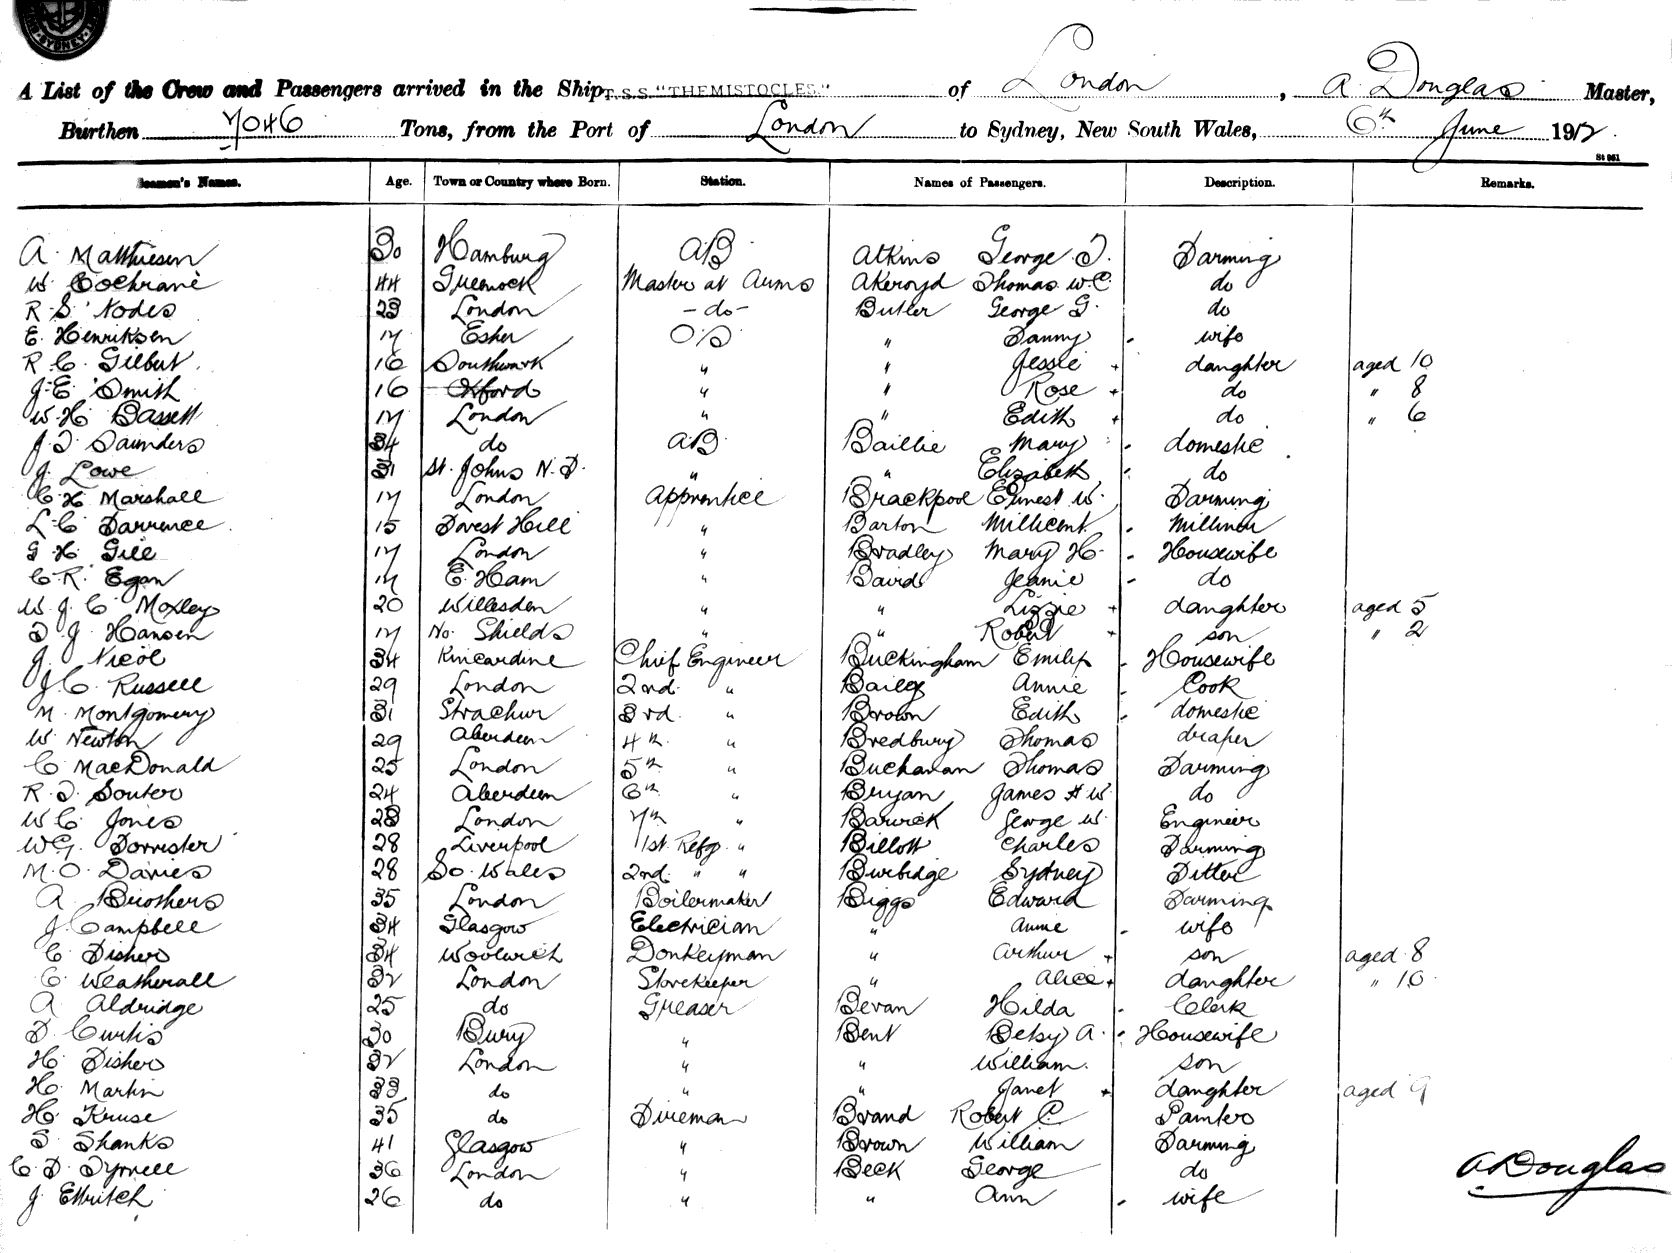 SYDNEY
A List of the Crew and Passengers arrived in the Ship T.S.S. "THEMISTOCLES." of London, A. Douglas Master,
Burthen 7046 Tons, from the Port of London to Sydney, New South Wales, 6th June 1912.
St 961
Seamen's Names. Age. Town or Country where Born. Station. Names of Passengers. Description. Remarks.
A. Matthiesen 30 Hamburg AB Atkins George F. Farming
W. Cochrane 44 Greenock Master at Arms Akeroyd Thomas W.C. do
R. S. Nodes 23 London - do - Butler George G. do
E. Henriksen 17 Esher OS " Fanny - wife
R. C. Gilbert 16 Southwark " " Jessie + daughter aged 10
J. E. Smith 16 Oxford " " Rose + do " 8
W. H. Bassett 17 London " " Edith + do " 6
J. F. Saunders 34 do AB Baillie Mary - domestic
J. Lowe 31 St. Johns N.F. " " Elizabeth - do
C. H. Marshall 17 London Apprentice Brackpool Ernest W. Farming
L. C. Farrence 15 Forest Hill " Barton Millicent - Milliner
G. H. Gill 17 London " Bradley Mary H. - Housewife
C. R. Egan 17 E. Ham " Baird Jeanie - do
W. J. C. Moxley 20 Willesden " " Lizzie + daughter aged 5
F. J. Hansen 17 No. Shields " " Robert + son " 2
J. Nicol 34 Kincardine Chief Engineer Buckingham Emily - Housewife
J. C. Russell 29 London 2nd. " Bailey Annie - Cook
M. Montgomery 31 Strachur 3rd. " Brown Edith - domestic
W. Newton 29 Aberdeen 4th " Bredbury Thomas draper
C. MacDonald 25 London 5th " Buchanan Thomas Farming
R. F. Souter 24 Aberdeen 6th " Bryan James H W. do
W. C. Jones 28 London 7th " Barwick George W. Engineer
W. G. Forrister 28 Liverpool 1st. Refg. " Billott Charles Farming
M. O. Davies 28 So. Wales 2nd. " " Burbidge Sydney Fitter
A. Brothers 35 London Boilermaker Biggs Edward Farming
J. Campbell 34 Glasgow Electrician " Annie - wife
C. Fisher 34 Woolwich Donkeyman " Arthur + son aged 8
C. Weatherall 32 London Storekeeper " Alice + daughter " 10
A. Aldridge 25 do Greaser Bevan Hilda - Clerk
F. Curtis 30 Bury " Bent Betsy A. - Housewife
H. Fisher 32 London " " William son
H. Martin 33 do " " Janet + daughter aged 9
H. Kruse 35 do Fireman Brand Robert C. Painter
S. Shanks 41 Glasgow " Brown William Farming
C. F. Tyrrell 36 London " Beck George do
J. Ettritch 26 do " " Ann - wife
A. Douglas